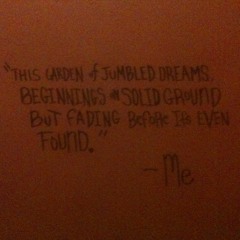 "THIS GARDEN of JUMBLED DREAMS,
BEGINNINGS on SOLID GROUND
BUT FADING BEFORE ITS EVEN
FOUND."
- Me